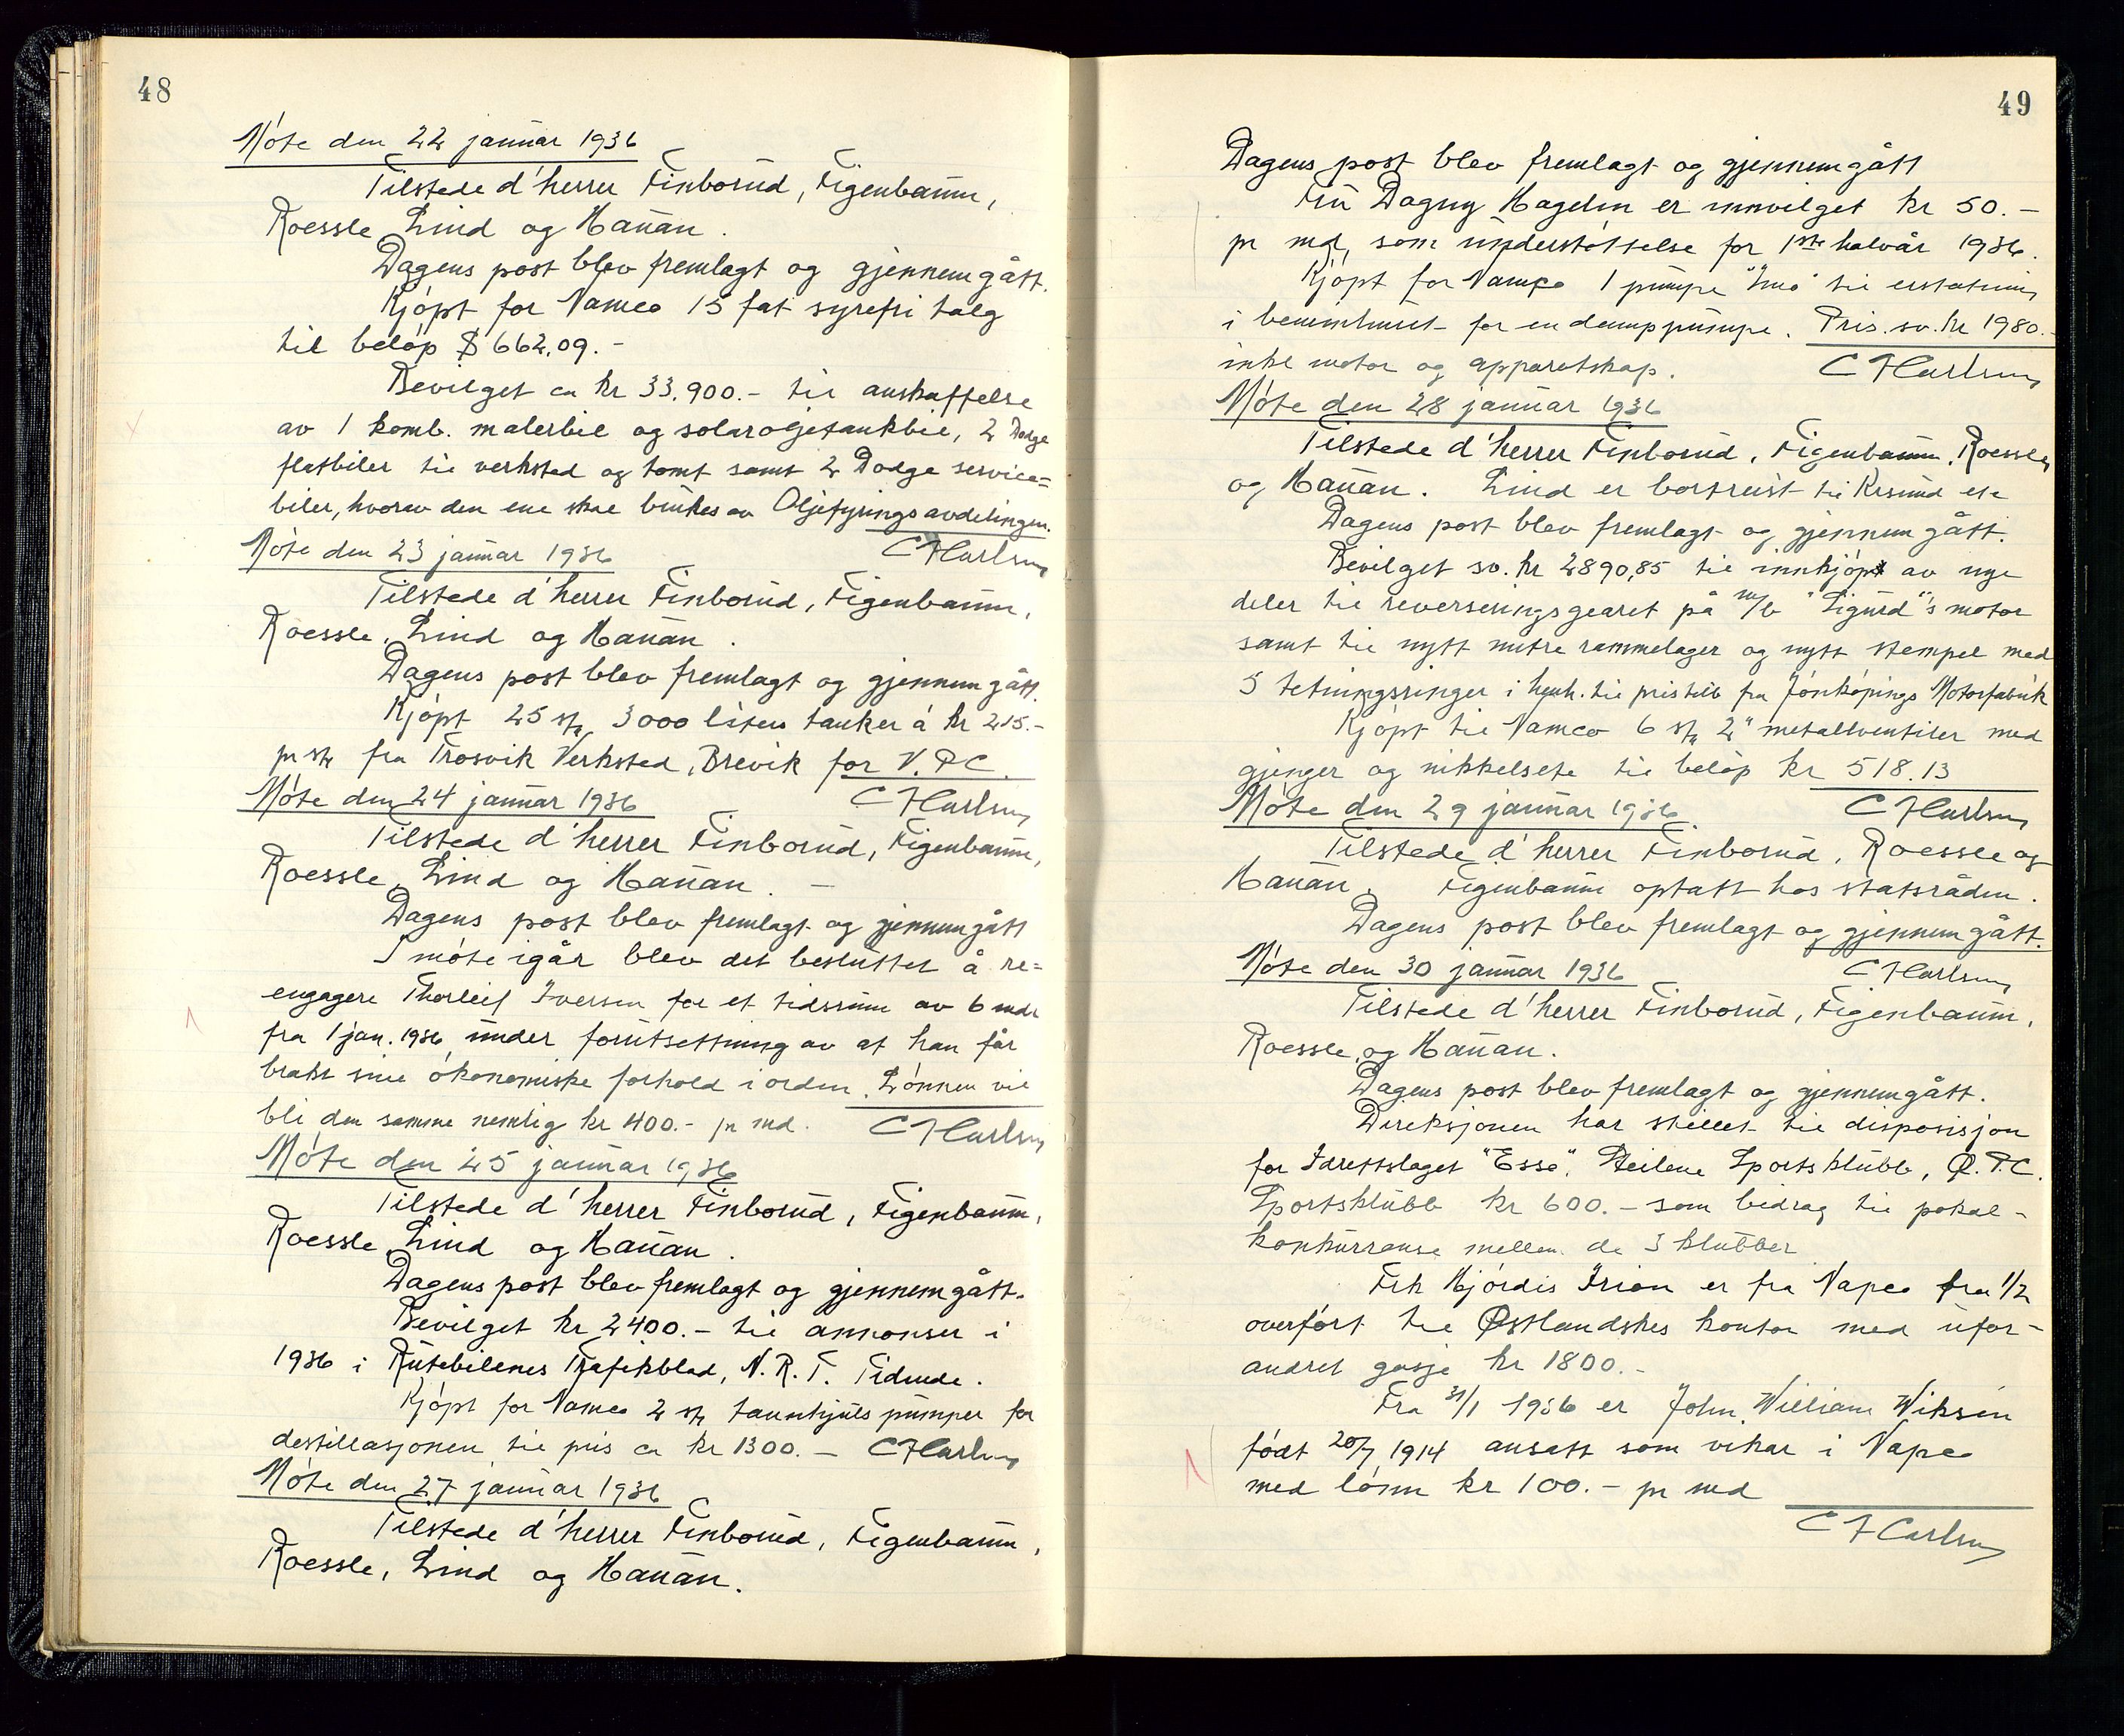 48
Møte den 22 januar 1936
Tilstede d'herrer Finborud, Figenbaum,
Roessle, Lind og Hanan.
Dagens post blev fremlagt og gjennemgått.
Kjøpt for Namco 15 fat syrefri talg
til beløp $ 662,09.-
Bevilget ca kr 33.900.- til anskaffelse
av 1 komb. malerbil og solaroljetankbil, 2 Dodge
flatbiler til verksted og tomt samt 2 Dodge service=
biler, hvorav den ene skal brukes av Oljefyringsavdelingen.
Møte den 23 januar 1936
C F Carlsen
Tilstede d'herrer Finborud, Figenbaum,
Roessle, Lind og Hanan.
Dagens post blev fremlagt og gjennemgått.
Kjøpt 25 stk 3000 liters tanker á kr 215.-
pr stk fra Trosvik Verksted, Brevik for V.P.C.
Møte den 24 januar 1936
C F Carlsen
Tilstede d'herrer Finborud, Figenbaum,
Roessle, Lind og Hanan. -
Dagens post blev fremlagt og gjennemgått
I møte igår blev det besluttet å re=
engagere Thorleif Iversen for et tidsrum av 6 mdr
fra 1 jan. 1936 under forutsettning av at han får
brakt sine økonomiske forhold i orden. Lønnen vil
bli den samme nemlig kr 400.- pr md.
C F Carlsen
Møte den 25 januar 1936
Tilstede d'herrer Finborud, Figenbaum,
Roessle, Lind og Hanan.
Dagens post blev fremlagt og gjennemgått.
Bevilget kr 2400.- til annonser i
1936 i Rutebilenes Trafikblad, N.R.T. Tidende.
Kjøpt for Namco 2 stk tannhjuls pumper for
destillasjonen til pris ca kr 1300.- C F Carlsen
Møte den 27 januar 1936
Tilstede d'herrer Finborud, Figenbaum,
Roessle, Lind og Hanan.
49
Dagens post blev fremlagt og gjennemgått
Fru Dagny Hagelin er innvilget kr 50.-
pr md, som understøttelse for 1ste halvår 1936.
Kjøpt for Namco 1 pumpe "Imo" til erstatning
i bensinhuset for en damppumpe. Pris. sv. kr 1980.-
inkl motor og apparatskap.
C F Carlsen
Møte den 28 januar 1936
Tilstede d'herrer Finborud, Figenbaum, Roessle,
og Hanan. Lind er bortreist til Krsund etc
Dagens post blev fremlagt og gjennemgått.
Bevilget sv. kr 2890,85 til innkjøp av nye
deler til reverseringsgearet på m/b "Sigurd"'s motor
samt til nytt midtre rammelager og nytt stempel med
5 tetningsringer i henh. til pristilb fra Jönköpings Motorfabrik
Kjøpt til Namco 6 stk 2" metallventiler med
gjenger og nikkelsete til beløp kr 518.13
Møte den 29 januar 1936.
C F Carlsen
Tilstede d'herrer Finborud, Roessle og
Hanan. Figenbaum optatt hos statsråden.
Dagens post blev fremlagt og gjennemgått.
Møte den 30 januar 1936
C F Carlsen
Tilstede d'herrer Finborud, Figenbaum,
Roessle, og Hanan.
Dagens post blev fremlagt og gjennemgått.
Direksjonen har stillet til disposisjon
for Idrettslaget "Esso", Steilene Sportsklubb, Ø.P.C.
Sportsklubb kr 600.- som bidrag til pokal-
konkurranse mellem de 3 klubber
Frk Hjørdis Irion er fra Napco fra 1/2
overført til Østlandskes kontor med ufor-
andret gasje kr 1800.-
Fra 31/1 1936 er John William Wiksén
født 20/7 1914 ansatt som vikar i Napco
med lønn kr 100.- pr md
C F Carlsen